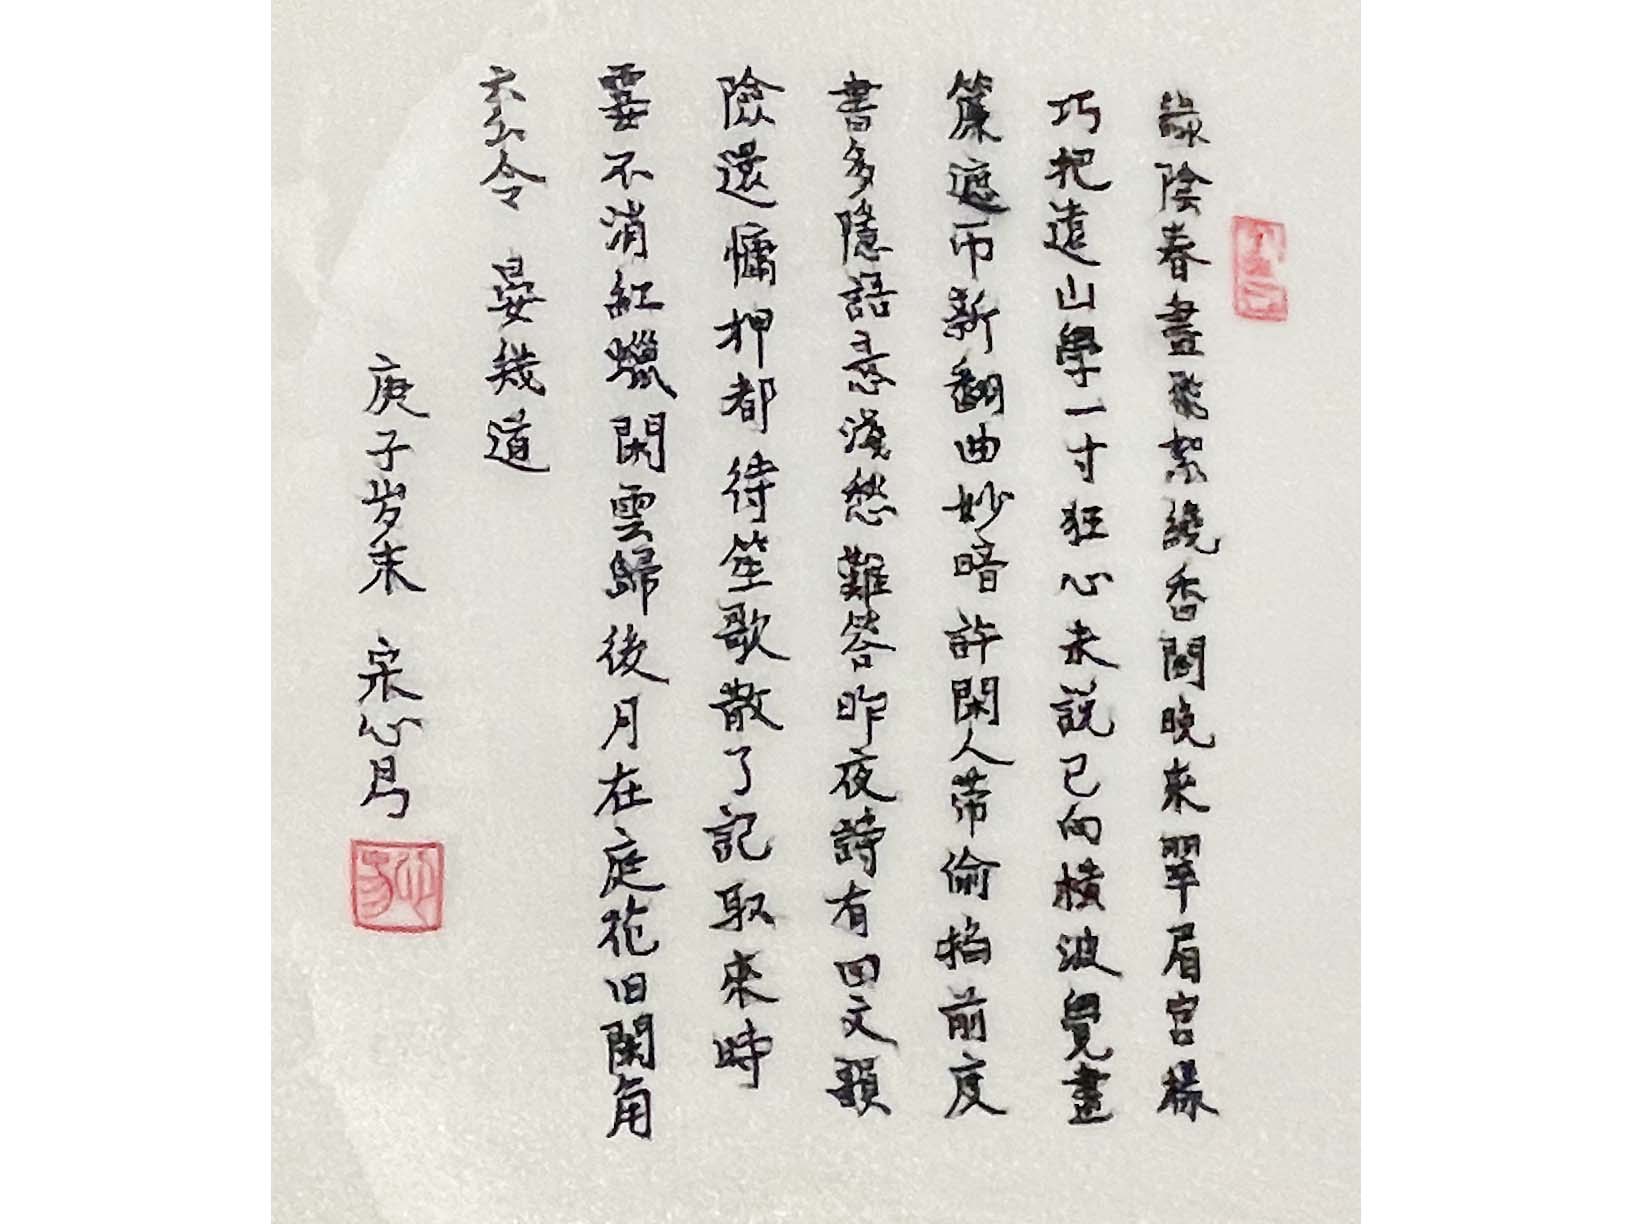 綠陰春盡飛絮繞香閣晚來翠眉宮樣
巧把遠山學一寸狂心未説已向橫波覺畫
簾遮帀新翻曲妙暗許閑人帶偷掐前度
書多隱語意淺愁難答昨夜詩有回文韻
險還慵押都待笙歌散了記取來時
霎不消紅蠟閑雲歸後月在庭花旧闌角
六幺令 晏幾道
庚子岁末 宋心